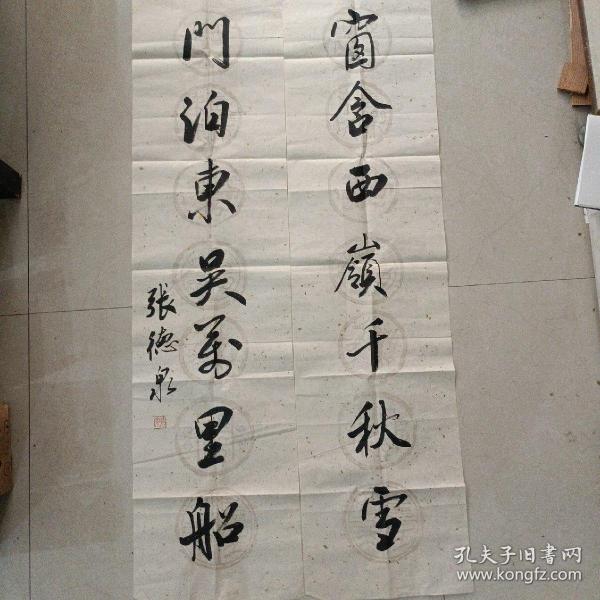 窗含西嶺千秋雪
門泊東吴萬里船
張德泉
孔夫子旧书网
www.kongfz.com